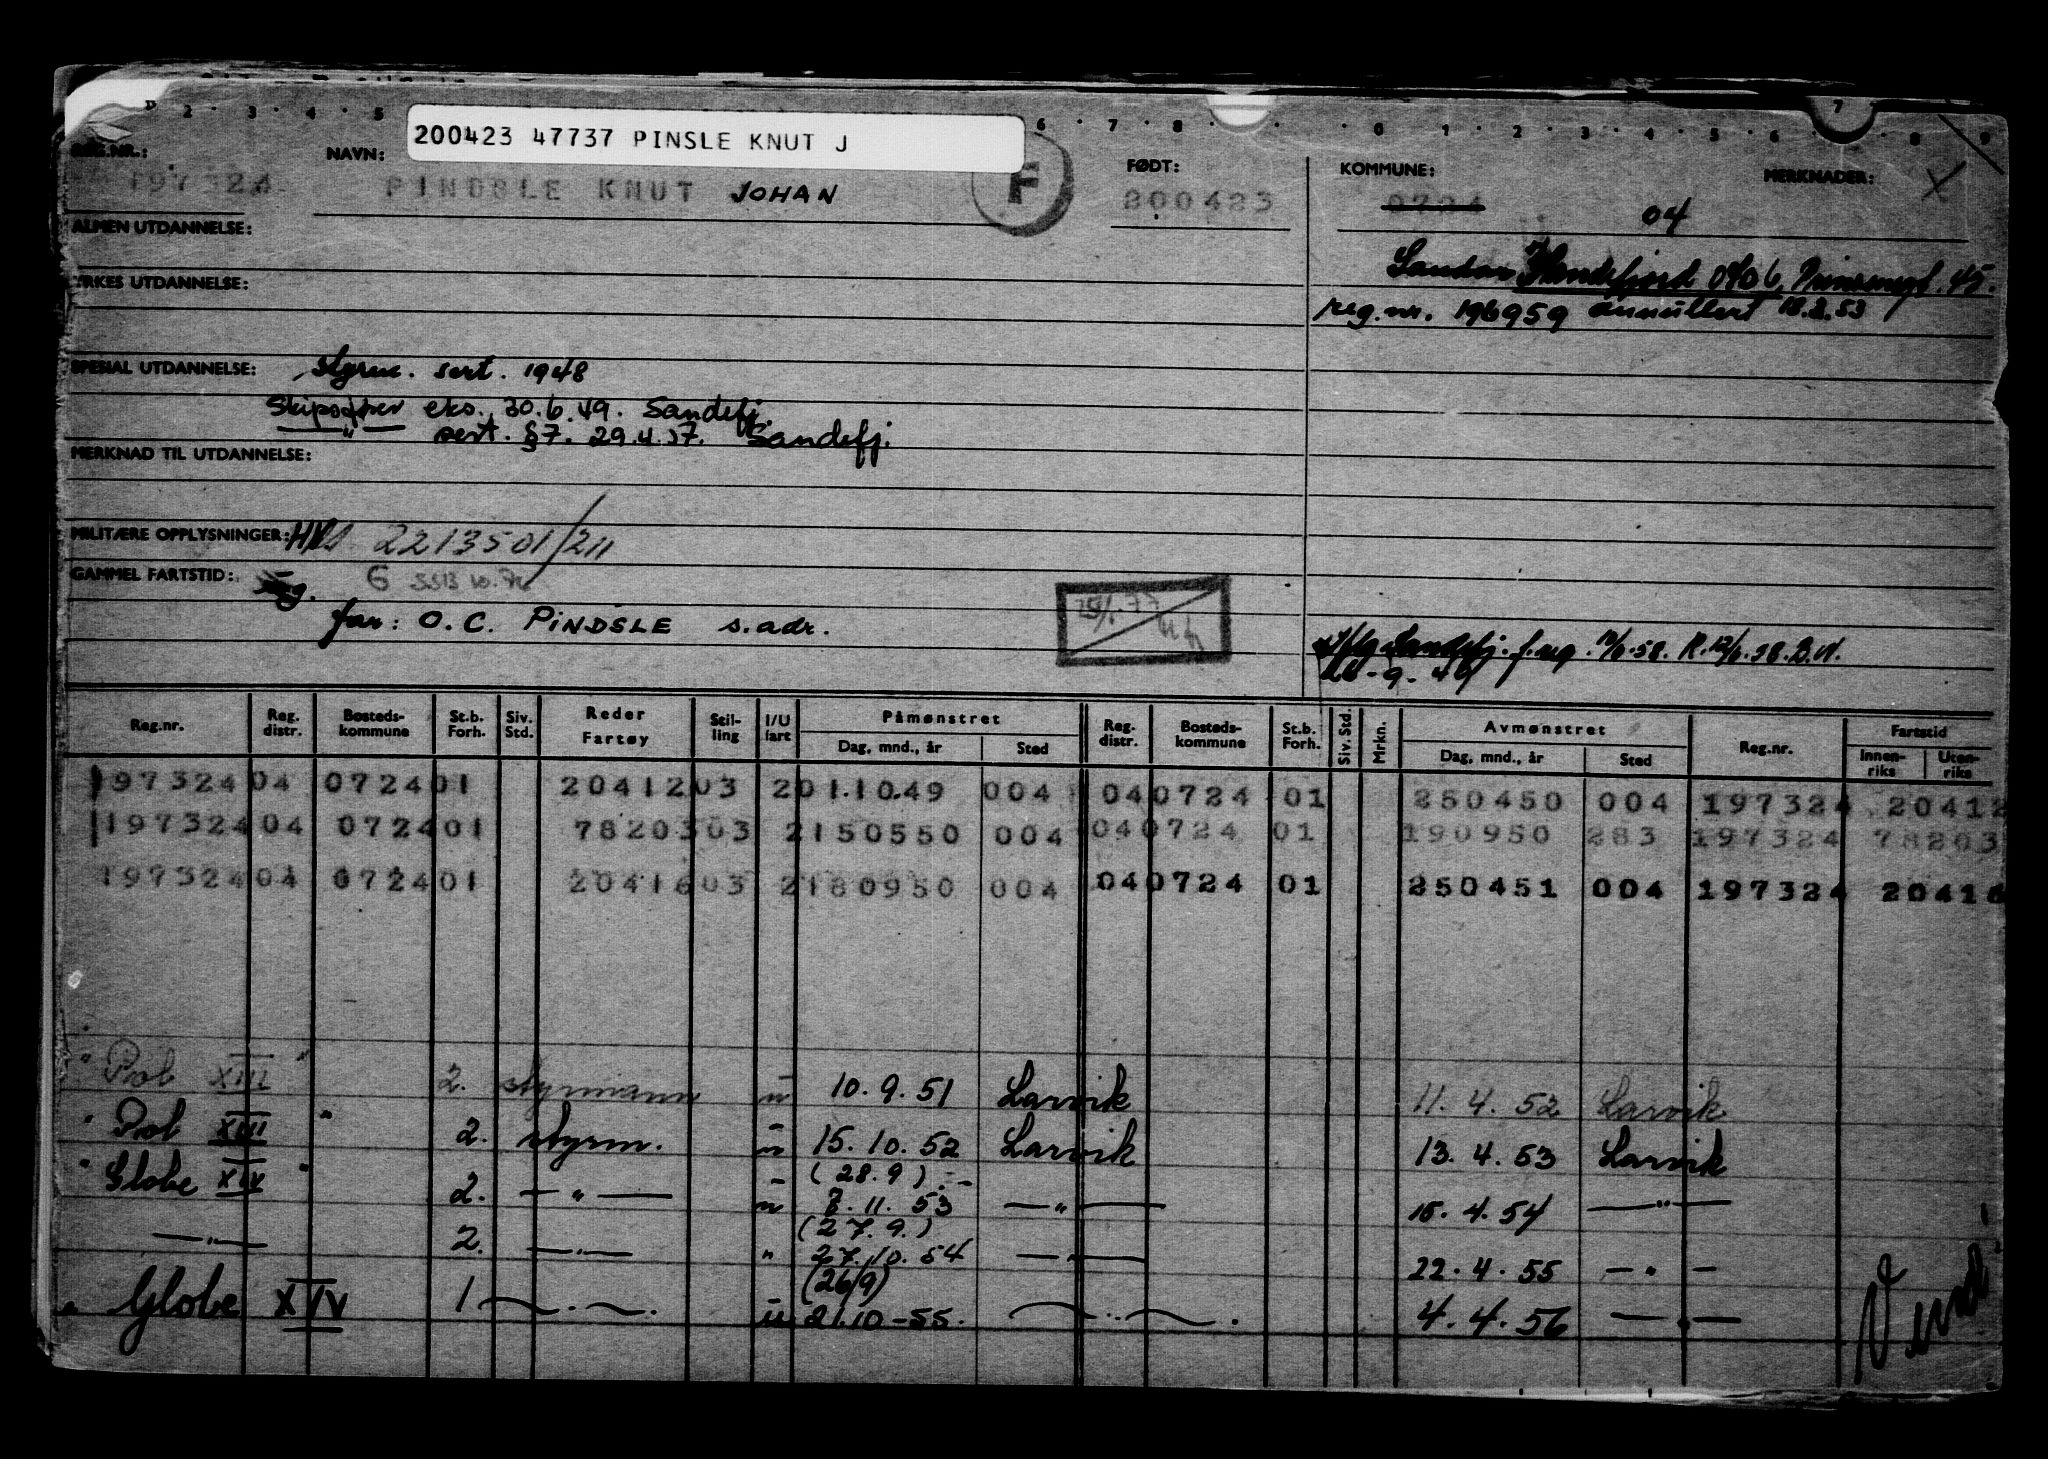 2 · 3 · 4 · 5 6 · 7 · 8 · 0 1 · 2 · 3 · 4 · 5 · 6 · 7 8 · 9
200423 47737 PINSLE KNUT J
REG.NR.: NAVN: FØDT: KOMMUNE: MERKNADER: X
197324 PINDSLE KNUT JOHAN F 200423 0724 04
ALMEN UTDANNELSE:
Sandar Sandefjord 0706, Prinsensgt. 45.
YRKES UTDANNELSE:
reg.nr. 196959 annullert 18.2.53
SPESIAL UTDANNELSE: Styrm. sert. 1948
Skipsfører eks. 30.6.49. Sandefj.
—"— sert. §7. 29.4.57. Sandefj.
MERKNAD TIL UTDANNELSE:
MILITÆRE OPPLYSNINGER: 2213501/211
GAMMEL FARTSTID: G
far: O.C. PINDSLE s.adr.
Sandefj. f.reg.
Reg.nr. Reg. distr. Bosteds-kommune St.b. Forh. Siv. Std. Reder Fartøy Stil-ling I/U fart Påmønstret Dag, mnd., år Sted Reg. distr. Bosteds-kommune St.b. Forh. Siv. Std. Mrkn. Avmønstret Dag, mnd., år Sted Reg.nr. Fartstid Innen-riks Uten-riks
197324 04 0724 01 20412 03 2 01.10.49 004 04 0724 01 250450 004 197324 20412
197324 04 0724 01 78203 03 2 150550 004 04 0724 01 190950 283 197324 78203
197324 04 0724 01 20416 03 2 180950 004 04 0724 01 250451 004 197324 20416
" Pol XIII " 2. styrmann u 10.9.51 Larvik 11.4.52 Larvik
" Pol XIII " 2. styrm. u 15.10.52 Larvik 13.4.53 Larvik
(28.9)
" Globe XIV " 2. —"— u 7.11.53 —"— 15.4.54 —"—
(27.9.)
—"— 2. —"— " 27.10.54 —"— 22.4.55 —"—
(26/9)
" Globe XIV 1 —"— u 21.10-55. —"— 4.4.56 —"—
Vend